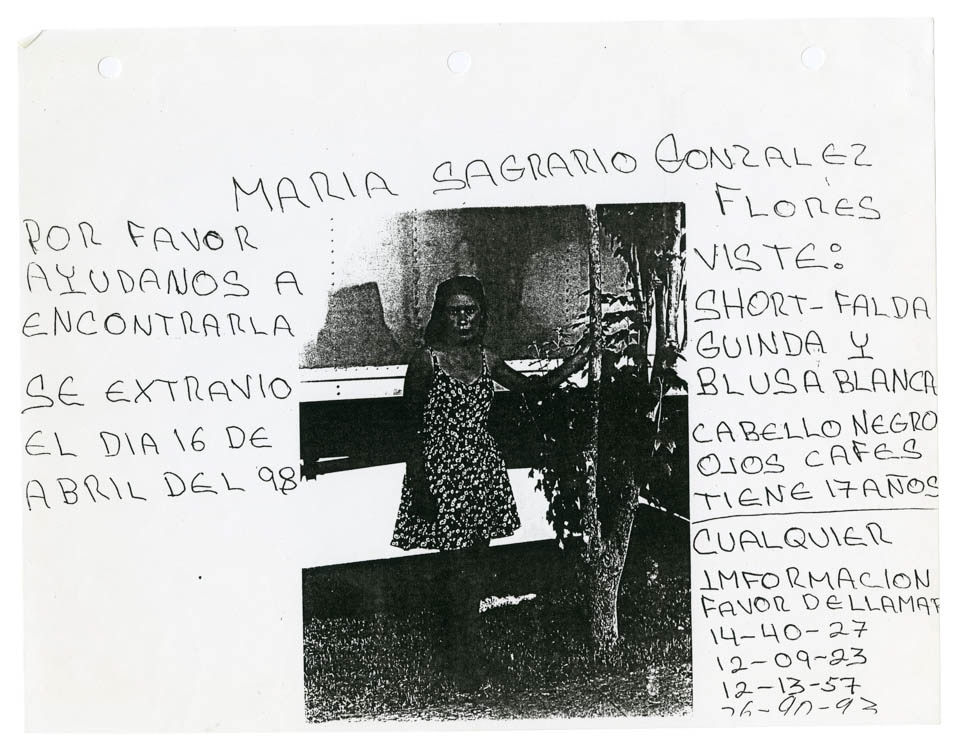 MARIA SAGRARIO GONZALEZ
FLORES
POR FAVOR
AYUDANOS A
ENCONTRARLA
SE EXTRAVIO
EL DIA 16 DE
ABRIL DEL '98
VISTE:
SHORT-FALDA
GUINDA Y
BLUSA BLANCA
CABELLO NEGRO
OJOS CAFES
TIENE 17 AÑOS
CUALQUIER
IMFORMACION
FAVOR DE LLAMAR
14-40-27
12-09-23
12-13-57